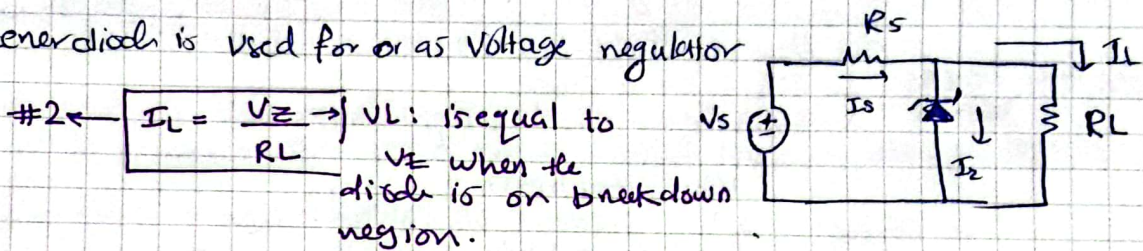 enerdiode is used for or as Voltage negulator
#2 ← IL = VZ / RL → VL: is equal to
VZ when the
diode is on breakdown
negion.
RS
IS
VS
IZ
IL
RL